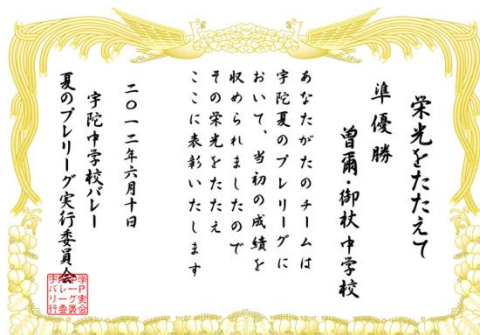 栄光をたたえて
準優勝
曽爾・御杖中学校
あなたがたのチームは
宇陀夏のプレリーグに
おいて、当初の成績を
収められましたので
その栄光をたたえ
ここに表彰いたします
二〇一二年六月十日
宇陀中学校バレー
夏のプレリーグ実行委員会